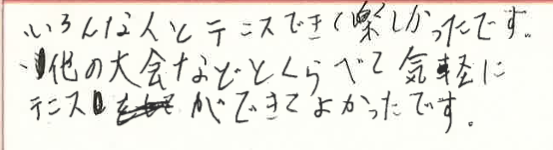 いろんな人とテニスできて楽しかったです。
他の大会などとくらべて気軽に
テニスができてよかったです。